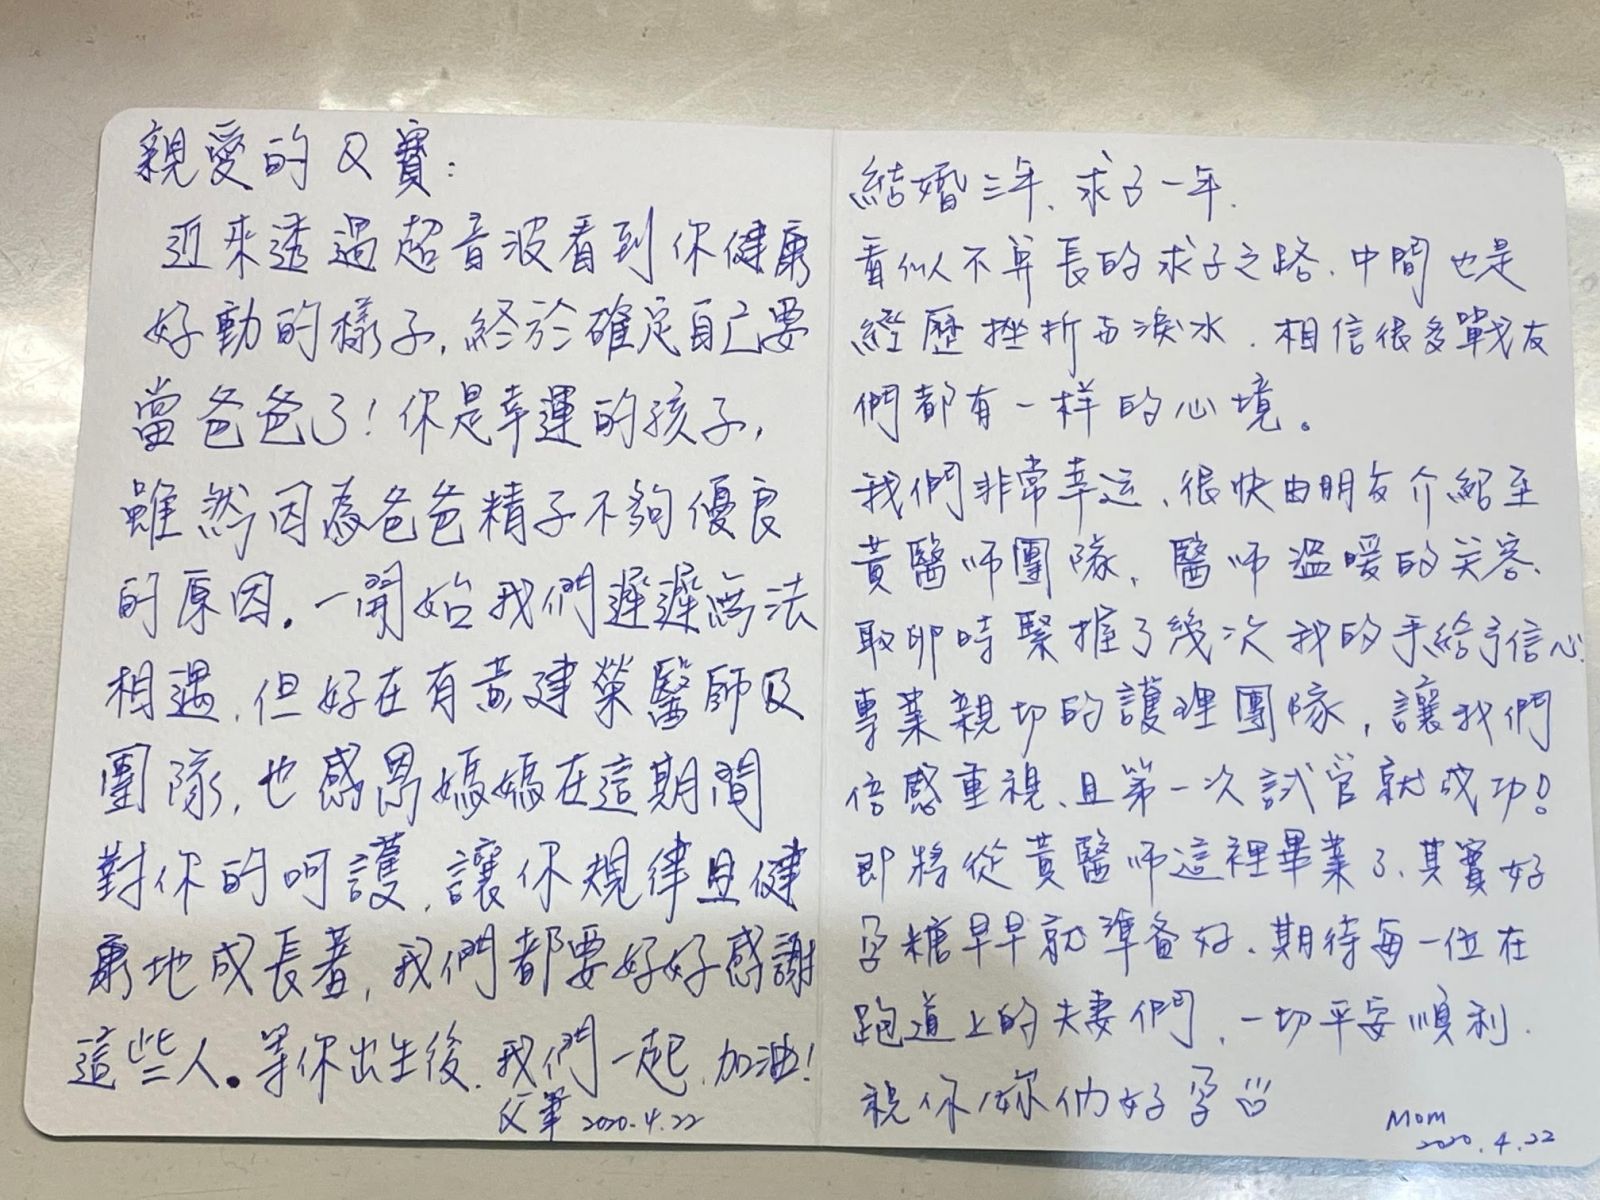 親愛的Q寶:
近來透過超音波看到你健康
好動的樣子,終於確定自己要
當爸爸了!你是幸運的孩子,
雖然因為爸爸精子不夠優良
的原因。一開始我們遲遲無法
相遇,但好在有黃建榮醫師及
團隊,也感恩媽媽在這期間
對你的呵護,讓你規律且健
康地成長著,我們都要好好感謝
這些人。等你出生後,我們一起,加油!
父筆 2020.4.22
結婚三年、求子一年.
看似不算長的求子之路、中間也是
經歷挫折與淚水.相信很多戰友
們都有一样的心境。
我們非常幸运、很快由朋友介紹至
黃醫師團隊,醫師溫暖的笑容、
取卵時緊握了幾次我的手給予信心.
專業親切的護理團隊,讓我們
倍感重視、且第一次試管就成功!
即將從黃醫師這裡畢業了、其實好
孕糖早早就準备好、期待每一位在
跑道上的夫妻們,一切平安順利.
祝你/妳們好孕
Mom
2020.4.22